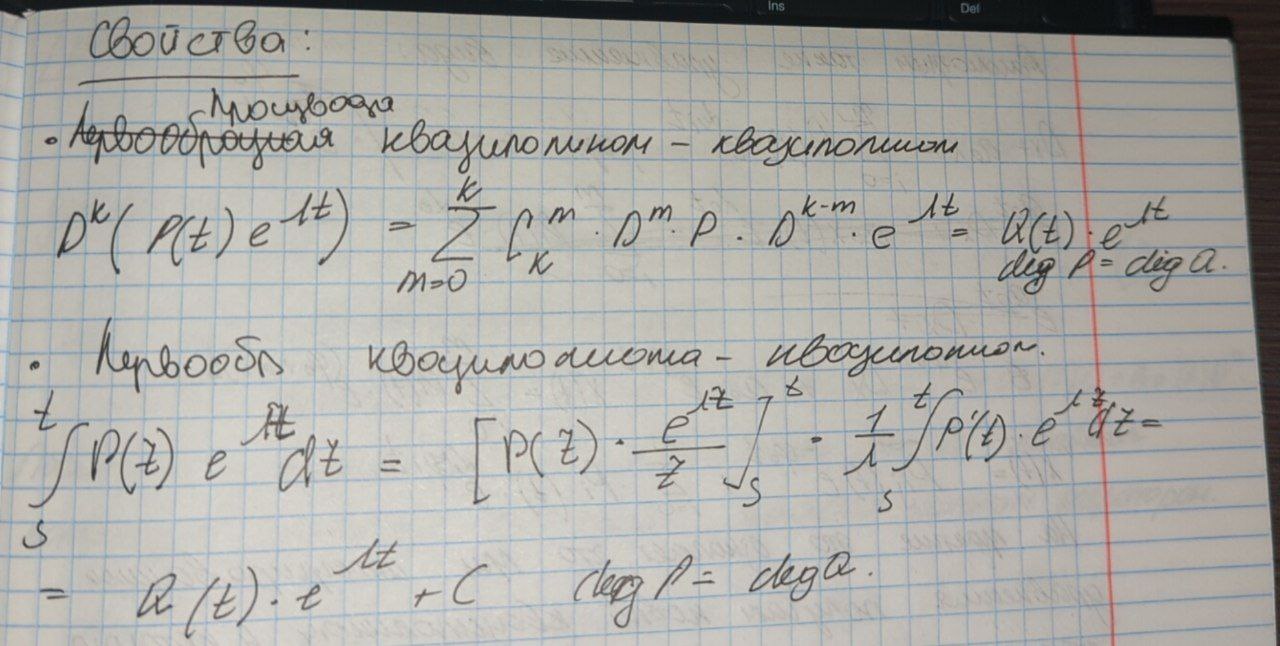 Ins Def
Свойства:
Производа
• Первообразная квазиполином – квазиполином
D^k ( P(t) e^{λt} ) = ∑_{m=0}^{k} C_k^m · D^m · P · D^{k-m} · e^{λt} = Q(t) · e^{λt}
deg P = deg Q.
• Первообр квазиполинома – квазиполином.
∫_s^t P(z) e^{λz} dz = [ P(z) · e^{λz}/z ]_s^t - 1/λ ∫_s^t P'(t) · e^{λz} dz =
= Q(t) · e^{λt} + C deg P = deg Q.